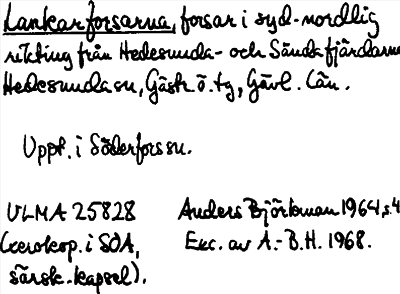 Lankarforsarna, forsar i syd-nordlig
riktning från Hedesunda- och Sündafjärdarna
Hedesunda sn, Gästr ö. tg, Gävl. län.
Uppt. i Söderfors sn.
ULMA 25828 Anders Björkman 1964, s.4
(xerokop. i SOA, Exc. av A.-B.H. 1968.
särsk. kapsel).